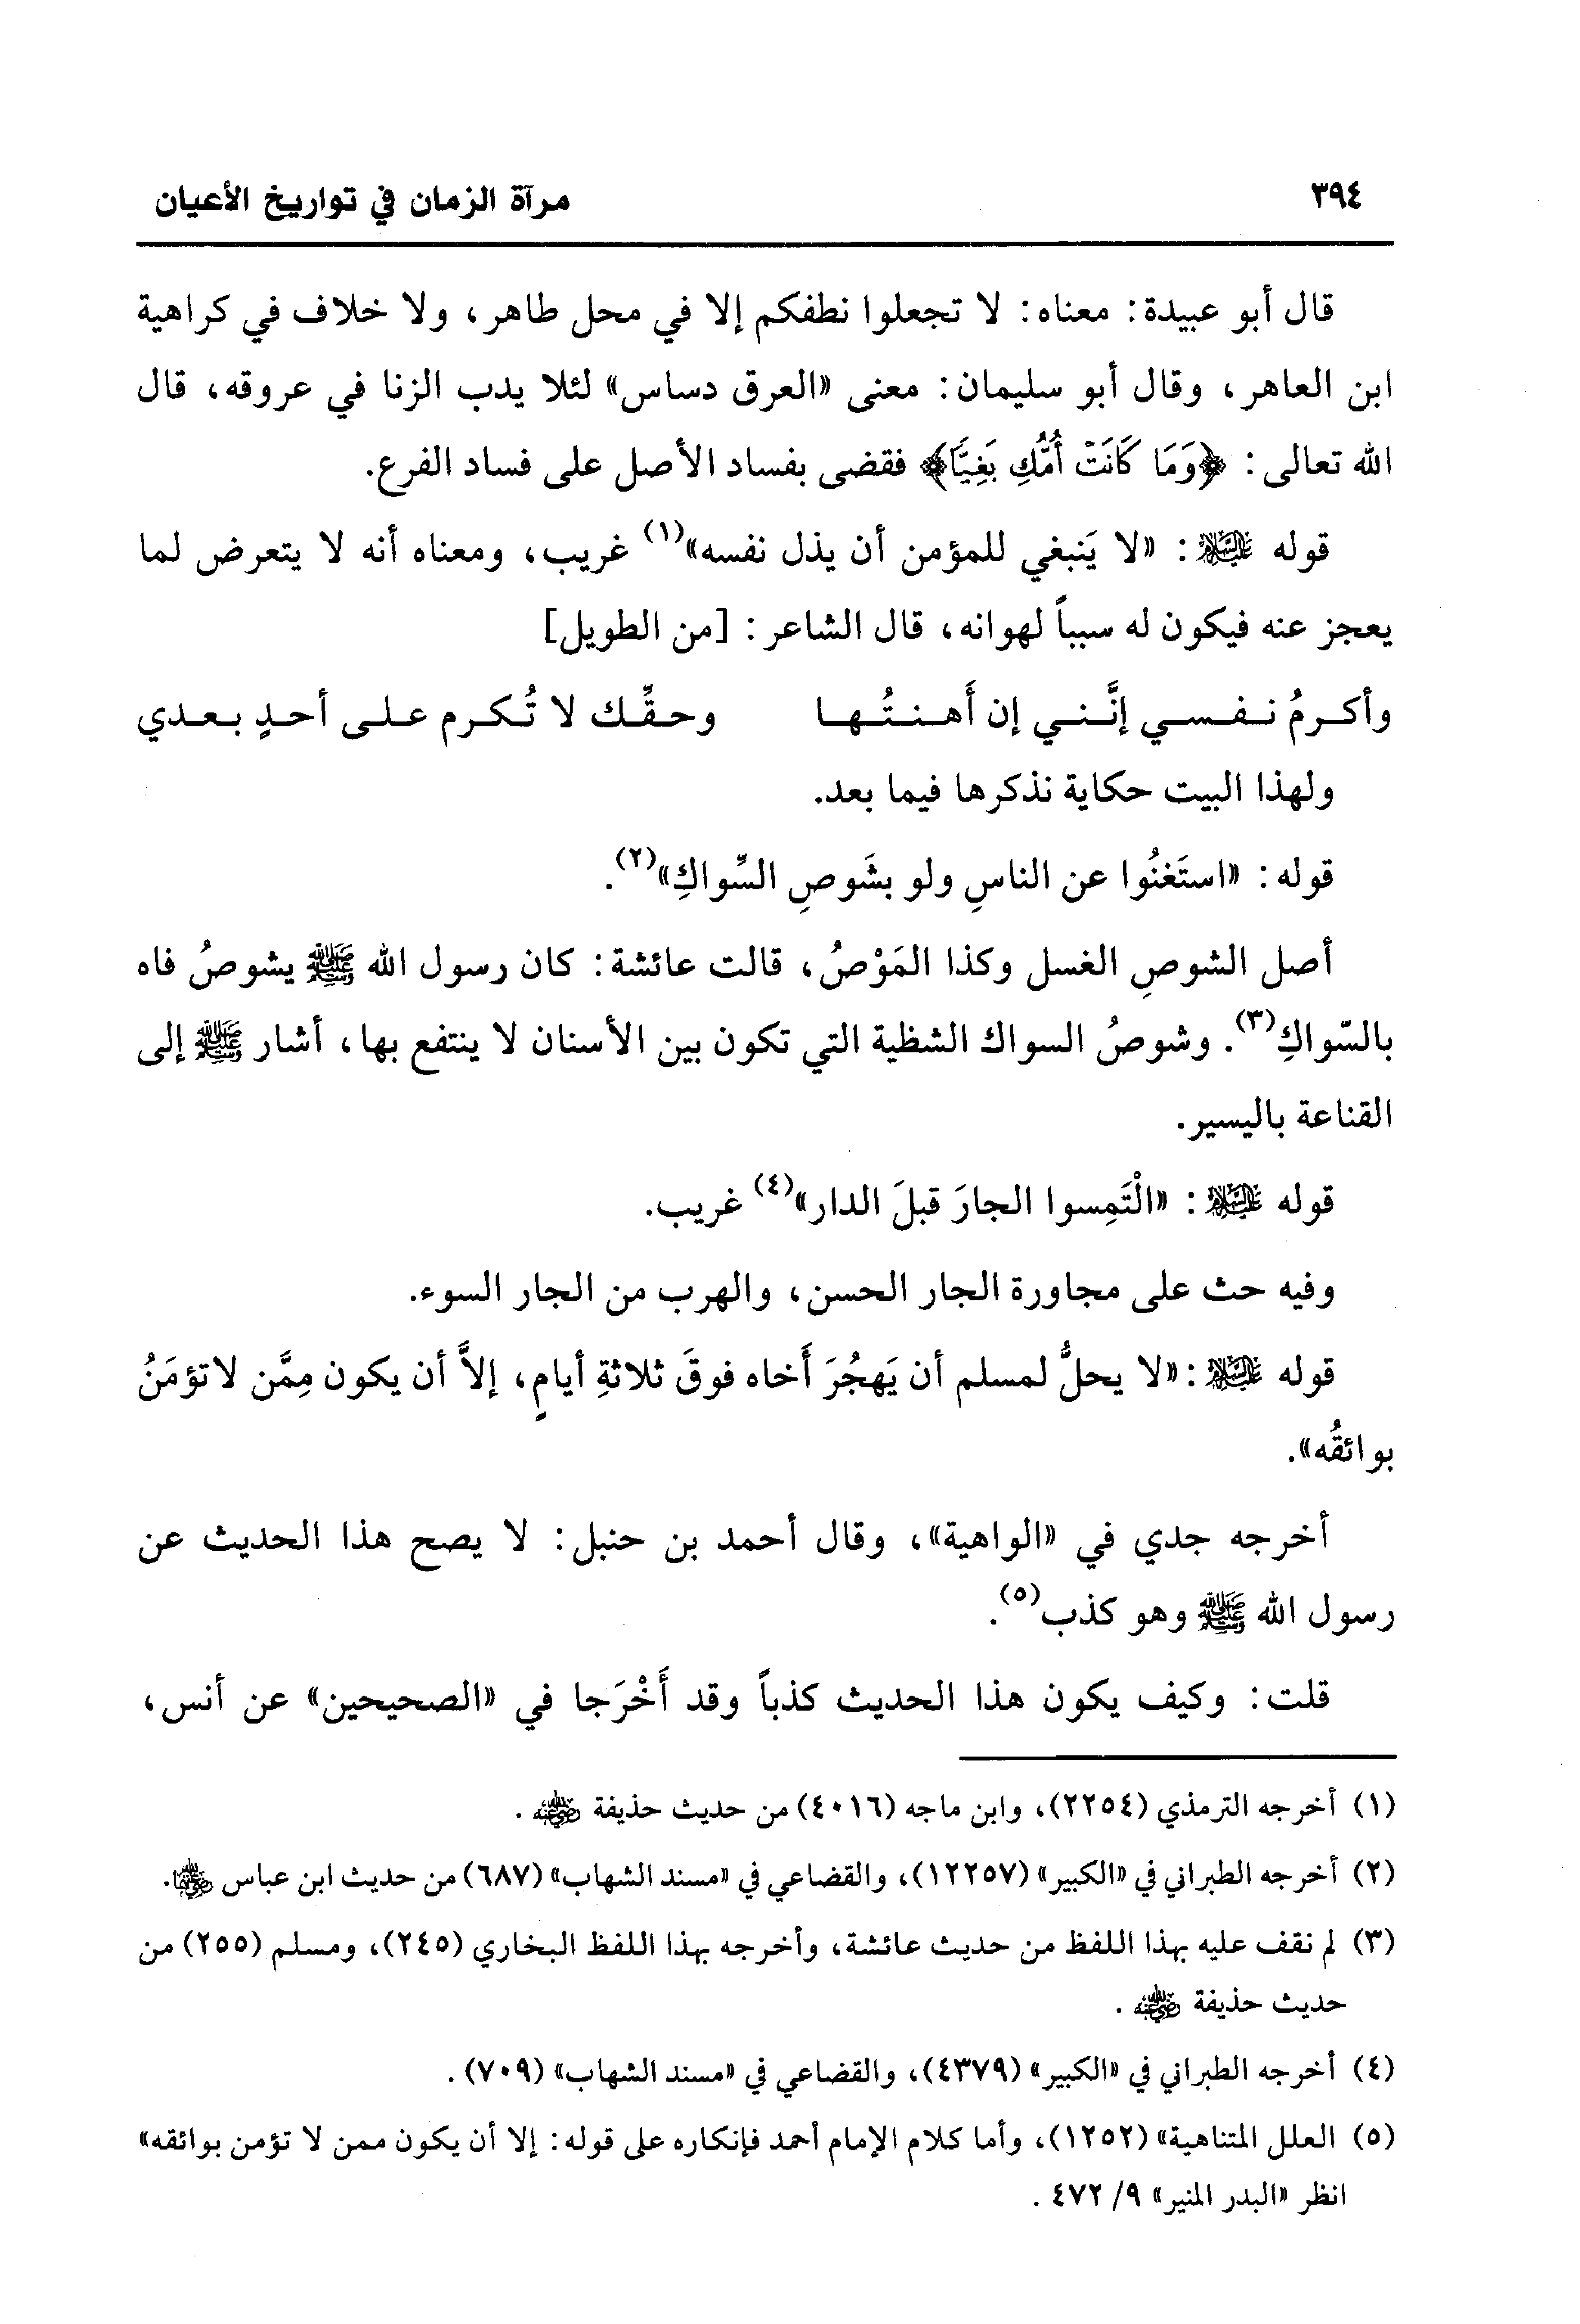 ٣٩٤ مرآة الزمان في تواريخ الأعيان
قال أبو عبيدة: معناه: لا تجعلوا نطفكم إلا في محل طاهر، ولا خلاف في كراهية
ابن العاهر، وقال أبو سليمان: معنى «العرق دساس» لئلا يدب الزنا في عروقه، قال
الله تعالى: ﴿وَمَا كَانَتْ أُمُّكِ بَغِيًّا﴾ فقضى بفساد الأصل على فساد الفرع.
قوله عليه السلام: «لا يَنبغي للمؤمن أن يذل نفسه»(١) غريب، ومعناه أنه لا يتعرض لما
يعجز عنه فيكون له سبباً لهوانه، قال الشاعر: [من الطويل]
وأكرمُ نفسي إنَّني إن أَهنتُها وحقِّك لا تُكرم على أحدٍ بعدي
ولهذا البيت حكاية نذكرها فيما بعد.
قوله: «استَغنُوا عن الناسِ ولو بشَوصِ السِّواكِ»(٢).
أصل الشوصِ الغسل وكذا المَوْصُ، قالت عائشة: كان رسول الله ﷺ يشوصُ فاه
بالسّواكِ(٣). وشوصُ السواك الشظية التي تكون بين الأسنان لا ينتفع بها، أشار ﷺ إلى
القناعة باليسير.
قوله عليه السلام: «الْتَمِسوا الجارَ قبلَ الدار»(٤) غريب.
وفيه حث على مجاورة الجار الحسن، والهرب من الجار السوء.
قوله عليه السلام: «لا يحلُّ لمسلم أن يَهجُرَ أَخاه فوقَ ثلاثةِ أيامٍ، إلاَّ أن يكون مِمَّن لا تؤمَنُ
بوائقُه».
أخرجه جدي في «الواهية»، وقال أحمد بن حنبل: لا يصح هذا الحديث عن
رسول الله ﷺ وهو كذب(٥).
قلت: وكيف يكون هذا الحديث كذباً وقد أَخْرَجا في «الصحيحين» عن أنس،
(١) أخرجه الترمذي (٢٢٥٤)، وابن ماجه (٤٠١٦) من حديث حذيفة رضي الله عنه.
(٢) أخرجه الطبراني في «الكبير» (١٢٢٥٧)، والقضاعي في «مسند الشهاب» (٦٨٧) من حديث ابن عباس رضي الله عنهما.
(٣) لم نقف عليه بهذا اللفظ من حديث عائشة، وأخرجه بهذا اللفظ البخاري (٢٤٥)، ومسلم (٢٥٥) من
حديث حذيفة رضي الله عنه.
(٤) أخرجه الطبراني في «الكبير» (٤٣٧٩)، والقضاعي في «مسند الشهاب» (٧٠٩).
(٥) العلل المتناهية» (١٢٥٢)، وأما كلام الإمام أحمد فإنكاره على قوله: إلا أن يكون ممن لا تؤمن بوائقه»
انظر «البدر المنير» ٩/ ٤٧٢.